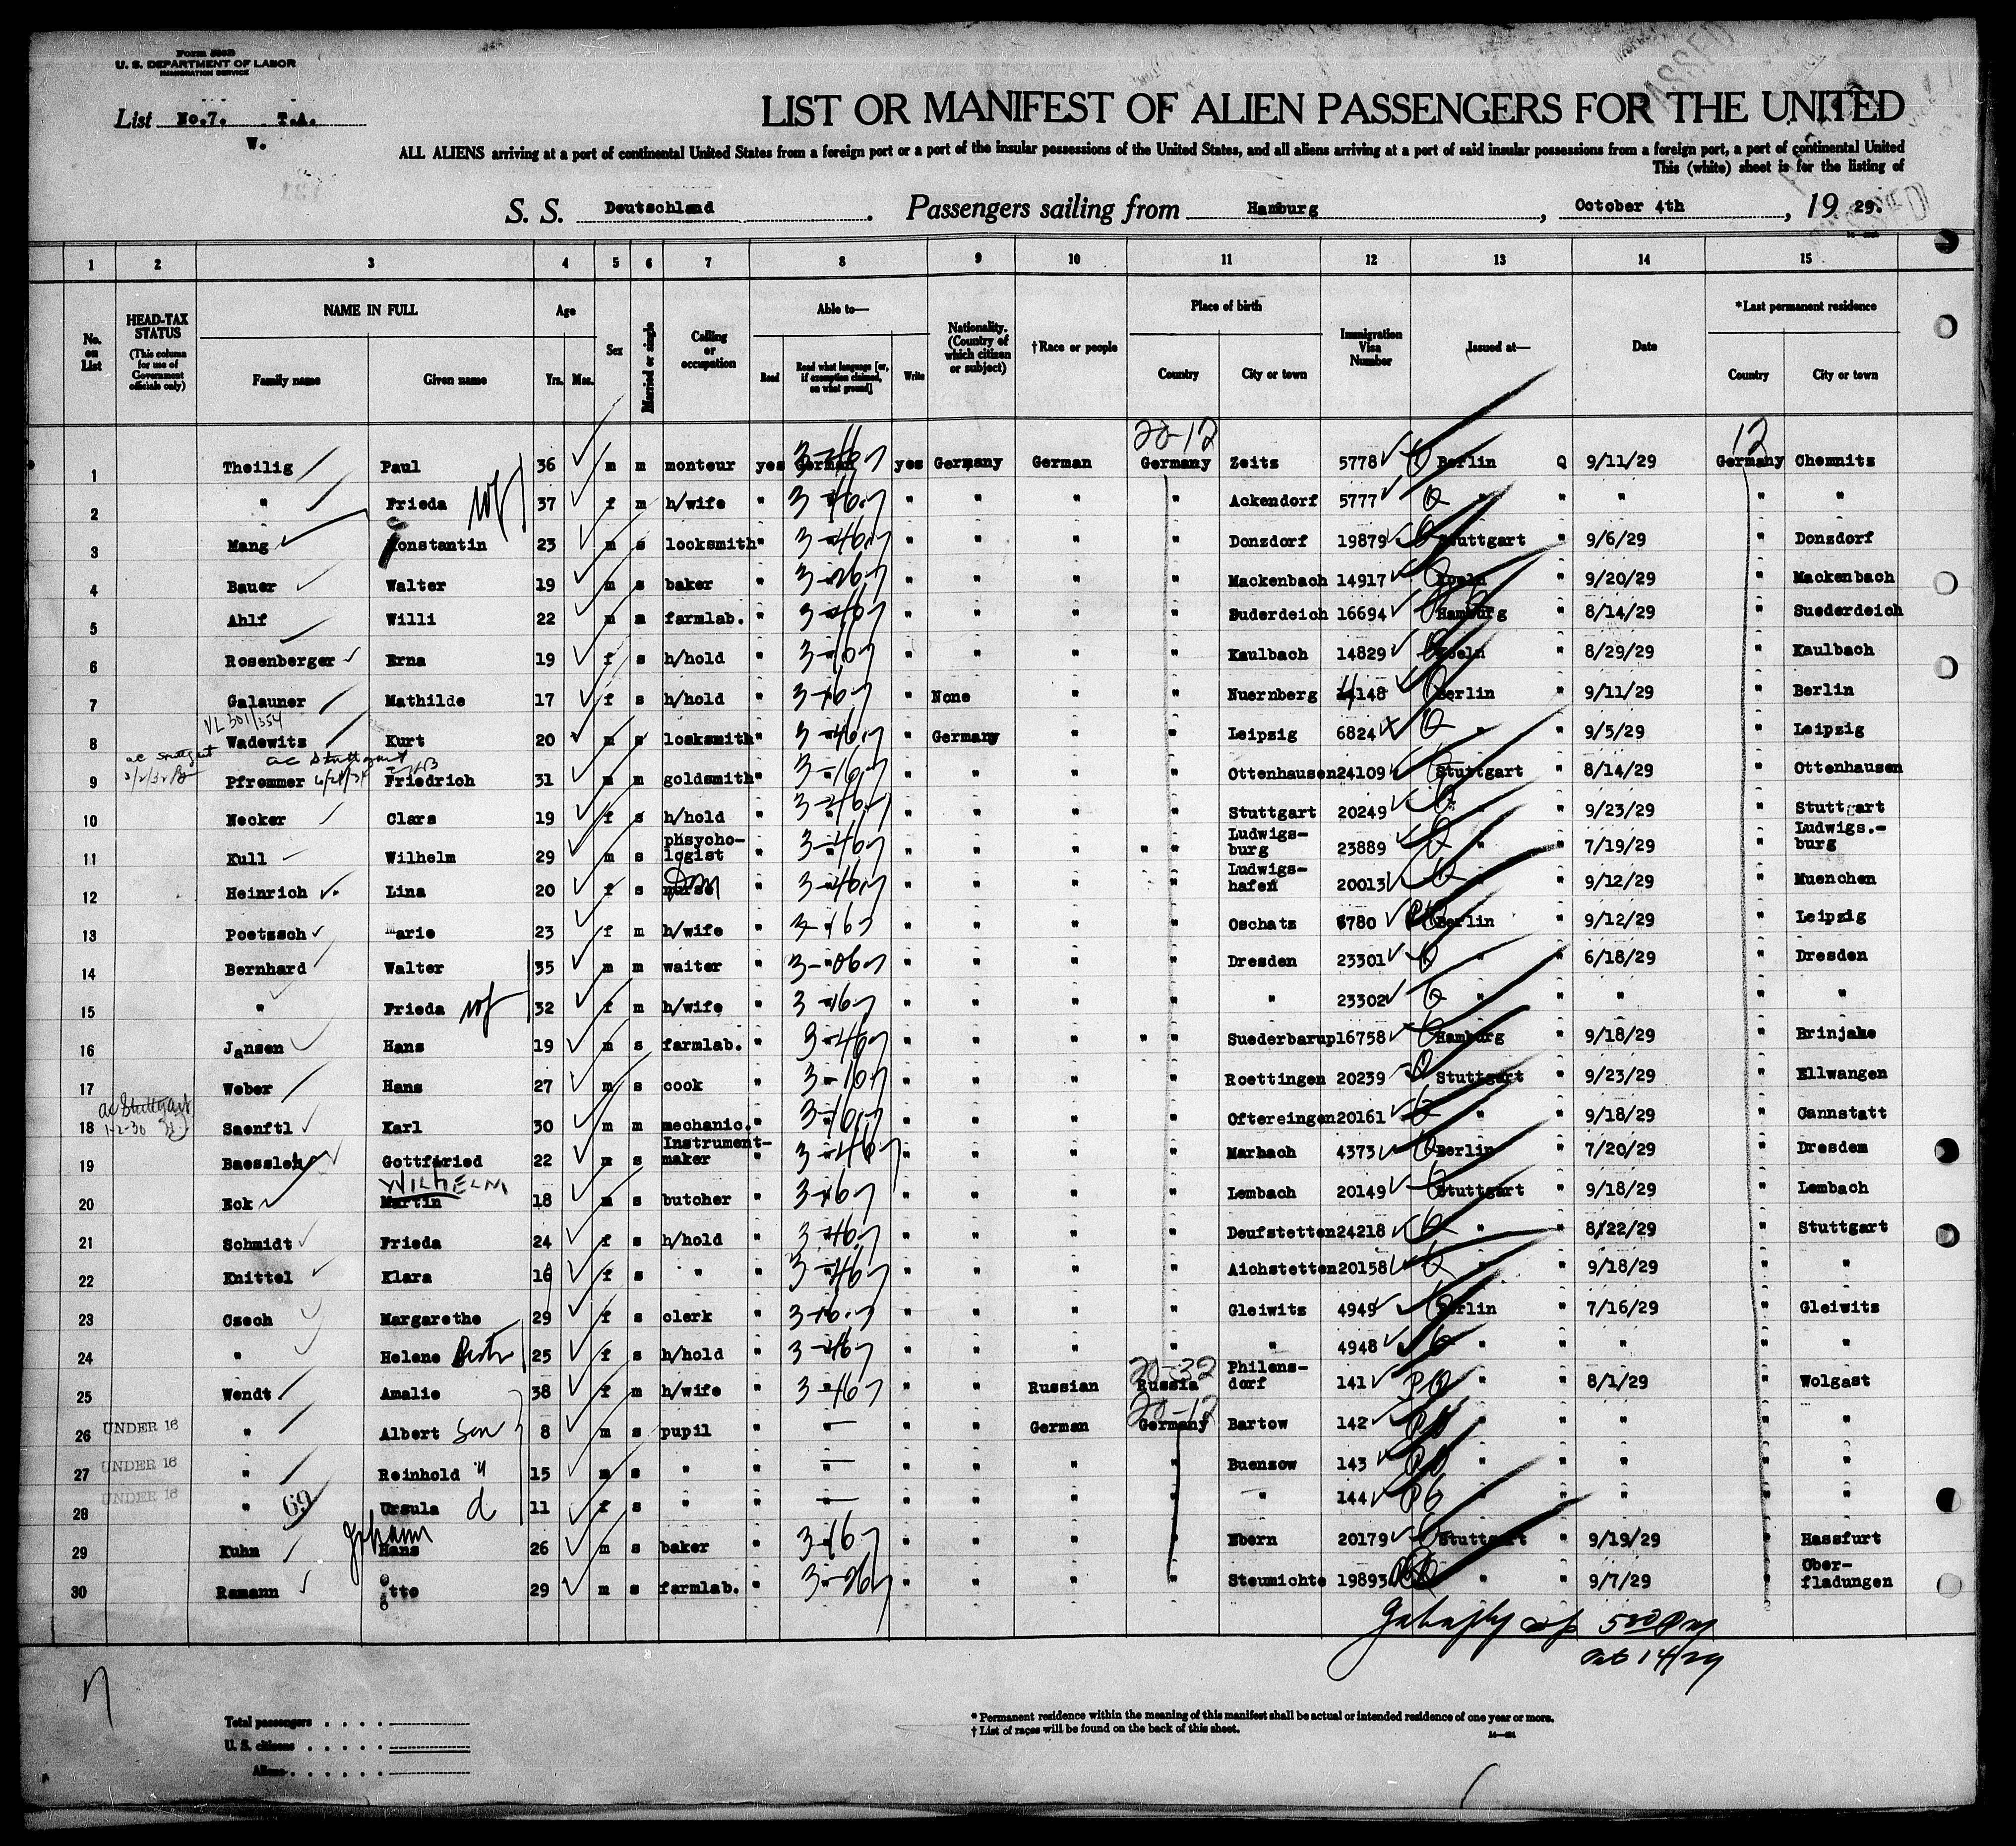 Form 500B
U. S. DEPARTMENT OF LABOR
IMMIGRATION SERVICE
List No.7. T.A.
W.
LIST OR MANIFEST OF ALIEN PASSENGERS FOR THE UNITED
ALL ALIENS arriving at a port of continental United States from a foreign port or a port of the insular possessions of the United States, and all aliens arriving at a port of said insular possessions from a foreign port, a port of continental United
This (white) sheet is for the listing of
S. S. Deutschland. Passengers sailing from Hamburg, October 4th, 19 29.
1 2 3 4 5 6 7 8 9 10 11 12 13 14 15
No. on List HEAD-TAX STATUS (This column for use of Government officials only) NAME IN FULL Family name Given name Age Yrs. Mos. Sex Married or single Calling or occupation Able to— Read Read what language [or, if exemption claimed, on what ground] Write Nationality. (Country of which citizen or subject) †Race or people Place of birth Country City or town Immigration Visa Number Issued at— Date *Last permanent residence Country City or town
20-12 12
1 Theilig Paul 36 m m monteur yes German yes Germany German Germany Zeitz 5778 Berlin Q 9/11/29 Germany Chemnits
2 " Frieda wf 37 f m h/wife " " " " " Ackendorf 5777 " " " " "
3 Mang Konstantin 23 m s locksmith " " " " " Donzdorf 19879 Stuttgart " 9/6/29 " Donsdorf
4 Bauer Walter 19 m s baker " " " " " Mackenbach 14917 Koeln " 9/20/29 " Mackenbach
5 Ahlf Willi 22 m m farmlab. " " " " " Suderdeich 16694 Hamburg " 8/14/29 " Suederdeich
6 Rosenberger Erna 19 f s h/hold " " " " " Kaulbach 14829 Koeln " 8/29/29 " Kaulbach
7 Galauner Mathilde 17 f s h/hold " " None " " Nuernberg 148 Berlin " 9/11/29 " Berlin
VL 301/354
8 Wadewits Kurt 20 m s locksmith " " Germany " " Leipzig 6824 " " 9/5/29 " Leipzig
ac Stuttgart
9 Pfrommer Friedrich 31 m m goldsmith " " " " " Ottenhausen 24109 Stuttgart " 8/14/29 " Ottenhausen
10 Necker Clara 19 f s h/hold " " " " " Stuttgart 20249 " " 9/23/29 " Stuttgart
11 Kull Wilhelm 29 m s phsycho-logist " " " " " Ludwigs-burg 23889 " " 7/19/29 " Ludwigs.-burg
12 Heinrich Lina 20 f s nurse Dom " " " " " Ludwigs-hafen 20013 " " 9/12/29 " Muenchen
13 Poetzsch Marie 23 f m h/wife " " " " " Oschatz 6780 Berlin " 9/12/29 " Leipzig
14 Bernhard Walter 35 m m waiter " " " " " Dresden 23301 " " 6/18/29 " Dresden
15 " Frieda wf 32 f m h/wife " " " " " " 23302 " " " " "
16 Jansen Hans 19 m s farmlab. " " " " " Suederbarup 16758 Hamburg " 9/18/29 " Brinjahe
17 Weber Hans 27 m s cook " " " " " Roettingen 20239 Stuttgart " 9/23/29 " Ellwangen
ac Stuttgart 1-2-30
18 Saenftl Karl 30 m m mechanic. " " " " " Oftereingen 20161 " " 9/18/29 " Cannstatt
19 Baessler Gottfried 22 m s Instrument-maker " " " " " Marbach 4373 Berlin " 7/20/29 " Dresdem
WILHELM
20 Eck Martin 18 m s butcher " " " " " Lembach 20149 Stuttgart " 9/18/29 " Lembach
21 Schmidt Frieda 24 f s h/hold " " " " " Deufstetten 24218 " " 8/22/29 " Stuttgart
22 Knittel Klara 16 f s " " " " " " Aichstetten 20158 " " 9/18/29 " "
23 Czech Margarethe 29 f s clerk " " " " " Gleiwitz 4949 Berlin " 7/16/29 " Gleiwits
24 " Helene 25 f s h/hold " " " " " " 4948 " " " " "
20-32
25 Wendt Amalie 38 f m h/wife " " " Russian Russia Philens-dorf 141 " " 8/1/29 " Wolgast
20-12
26 UNDER 16 " Albert Son 8 m s pupil " " " German Germany Bartow 142 " " " " "
27 UNDER 16 " Reinhold " 15 m s " " " " " " Buensow 143 " " " " "
28 UNDER 16 " 69 Ursula d 11 f s " " " " " " " 144 " " " " "
Johann
29 Kuhn Hans 26 m s baker " " " " " Ebern 20179 Stuttgart " 9/19/29 " Hassfurt
30 Ramann Otto 29 m s farmlab. " " " " " Steumichte 19893 " " 9/7/29 " Ober-fladungen
Total passengers
U. S. citizens
Aliens
* Permanent residence within the meaning of this manifest shall be actual or intended residence of one year or more.
† List of races will be found on the back of this sheet.